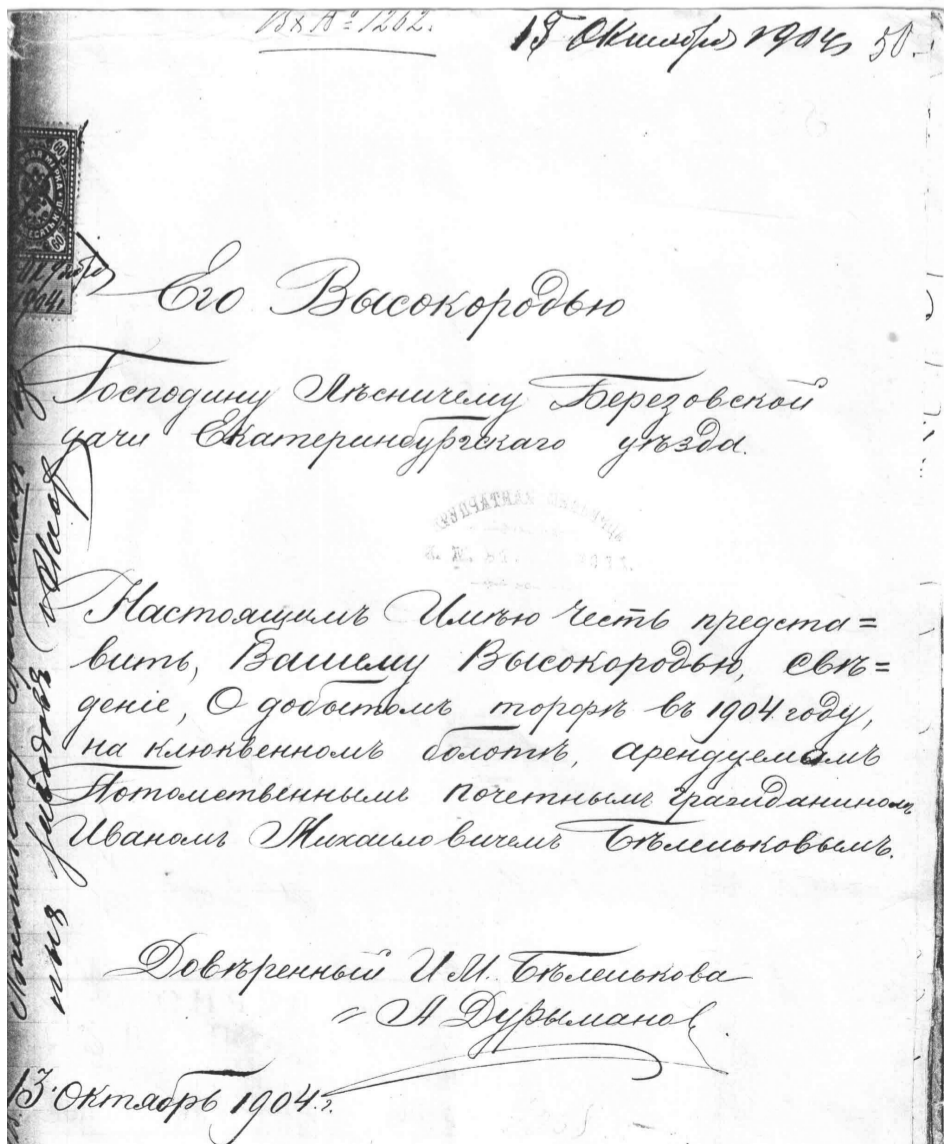 Вх № 1262.
15 Октября 1904 50.
Его Высокородью
Господину Лѣсничему Березовской
дачи Екатеринбургскаго уѣзда.
Настоящимъ Имѣю Честь предста=
вить, Вашему Высокородью, свѣ=
деніе, О добытомъ торфѣ въ 1904 году,
на клюквенномъ болотѣ, арендуемомъ
Потомственнымъ почетнымъ гражданиномъ
Иваномъ Михаиловичемъ Бѣленьковымъ.
Довѣренный И. М. Бѣленькова
А Дурыманов
13 Октябрь 1904 г.